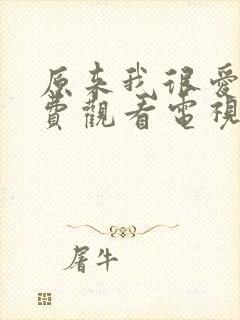 原来我很爱
費觀看電視
屠牛